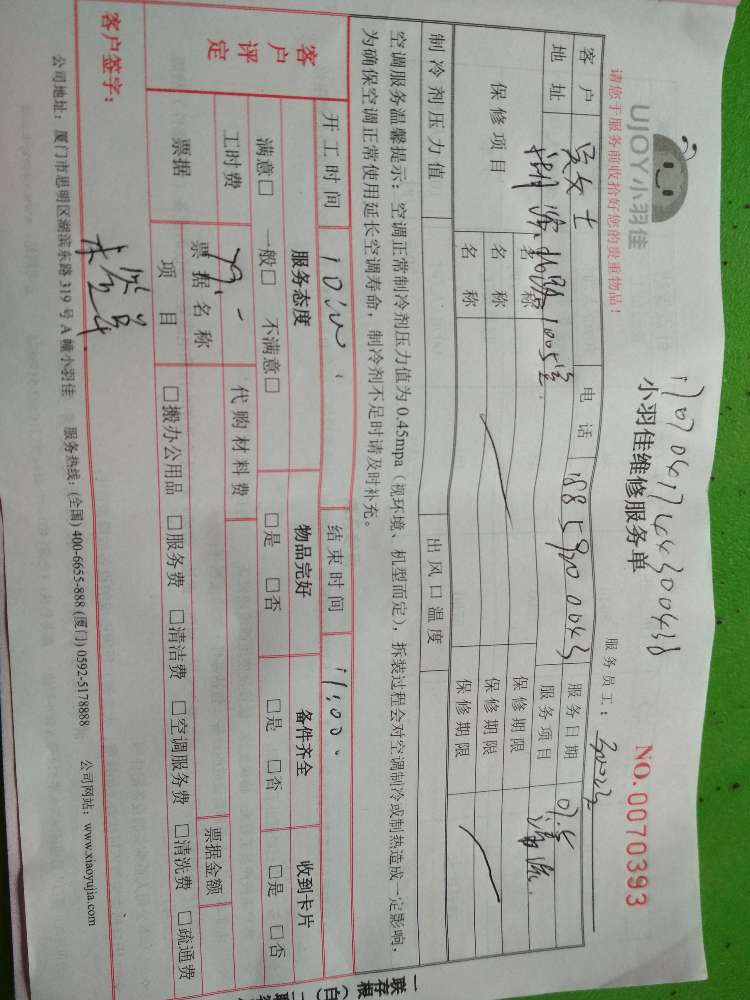 UJOY小羽佳
请您于服务前收拾好您的贵重物品！
小羽佳维修服务单
NO.0070393
服务员工：
客户 吴女士 电话 服务日期
地址 服务项目
保修项目 名称 保修期限
名称 保修期限
名称 保修期限
制冷剂压力值 出风口温度
空调服务温馨提示：空调正常制冷剂压力值为0.45mpa（视环境、机型而定），拆装过程会对空调制冷或制热造成一定影响，
为确保空调正常使用延长空调寿命，制冷剂不足时请及时补充。
开工时间 10:00 结束时间 11:00
客户评定 服务态度 物品完好 备件齐全 收到卡片
满意□ 一般□ 不满意□ □是 □否 □是 □否 □是 □否
工时费 代购材料费
票据 票据名称 票据金额
项目 □搬办公用品 □服务费 □清洁费 □空调服务费 □清洗费 □疏通费
客户签字：
公司地址：厦门市思明区湖滨东路319号A幢小羽佳 服务热线：(全国)400-6655-888 (厦门)0592-5178888 公司网站：www.xiaoyujia.com
一联存根